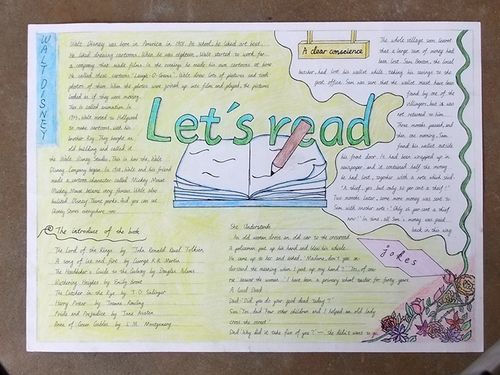 WALT DISNEY
Walt Disney was born in America in 1901. At school, he liked art best.
He liked drawing cartoons. When he was eighteen, Walt started to work for
a company that made films. In the evenings he made his own cartoons at home
He called these cartoons "Laugh-O-Grams". Walt drew lots of pictures and took
photos of them. When the photos were joined up into film and played, the pictures
looked as if they were moving.
This is called animation. In
1923, Walt moved to Hollywood
to make cartoons with his
brother Roy. They bought an
old building and called it
the Walt Disney Studio. This is how the Walt
Disney Company began. In 1928, Walt and his friend
made a cartoon character called Mickey Mouse.
Mickey Mouse became very famous. Walt also
builded Disney Theme parks. And you can see
Disney Stores everywhere now.
Let's read
A clear conscience
The whole village soon learnt
that a large sum of money had
been lost. Sam Benton, the local
butcher, had lost his wallet while taking his savings to the
post office. Sam was sure that the wallet must have been
found by one of the
villagers, but it was
not returned to him.
Three months passed, and
then one morning, Sam
found his wallet outside
his front door. It had been wrapped up in
newspaper, and it contained half the money
he had lost, together with a note which said:
"A thief, yes, but only 50 per cent a thief!"
Two months later, some more money was sent to
Sam with another note: "Only 25 per cent a thief
now!" In time, all Sam's money was paid
back in this way
The introduce of the book
The Lord of the Rings by John Ronald Reuel Tolkien
A song of ice and fire by George R.R. Martin
The Hitchhiker's Guide to the Galaxy by Douglas Adams
Wuthering Heights by Emily Bronte
The Catcher in the Rye by J. D. Salinger
Harry Potter by Joanne Rowling
Pride and Prejudice by Jane Austen
Anne of Green Gables by L. M. Montgomery
jokes
She Understands
An old woman drove an old car to the crossroad
A policeman put up his hand and blew his whistle.
He came up to her and asked, "Madame, don't you un-
derstand the meaning when I put up my hand?" "Yes, of cou-
rse," answer the woman. "I have been a primary school teacher for forty years
A Good Deed
Dad: Did you do your good deed today?
Son: Yes, Dad. Four other children and I helped an old lady
cross the street.
Dad: Why did it take five of you? — She didn't want to go